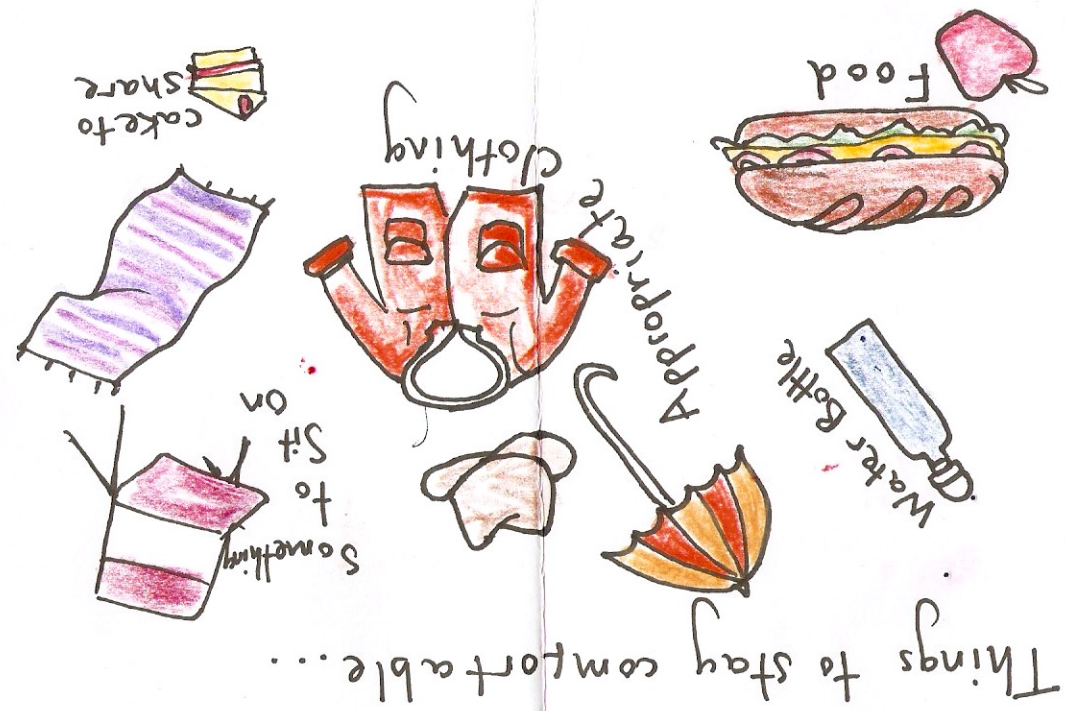 Things to stay comfortable...
Water Bottle
Food
Appropriate
clothing
Something
to
Sit
on
cake to
share